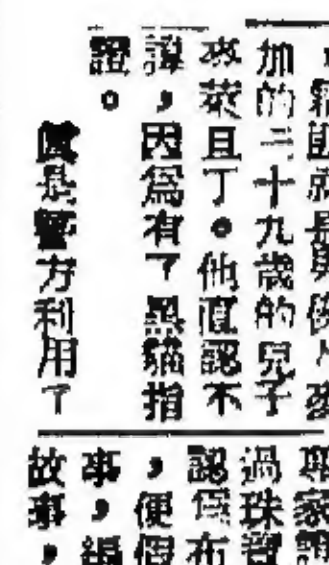 就是男
加的二十九歲的兒子
萊且丁。他直認不
諱，因爲有了黑貓指
證。
是警方利用了
專家
過珠寶
認爲布
，便假
事，
故事，